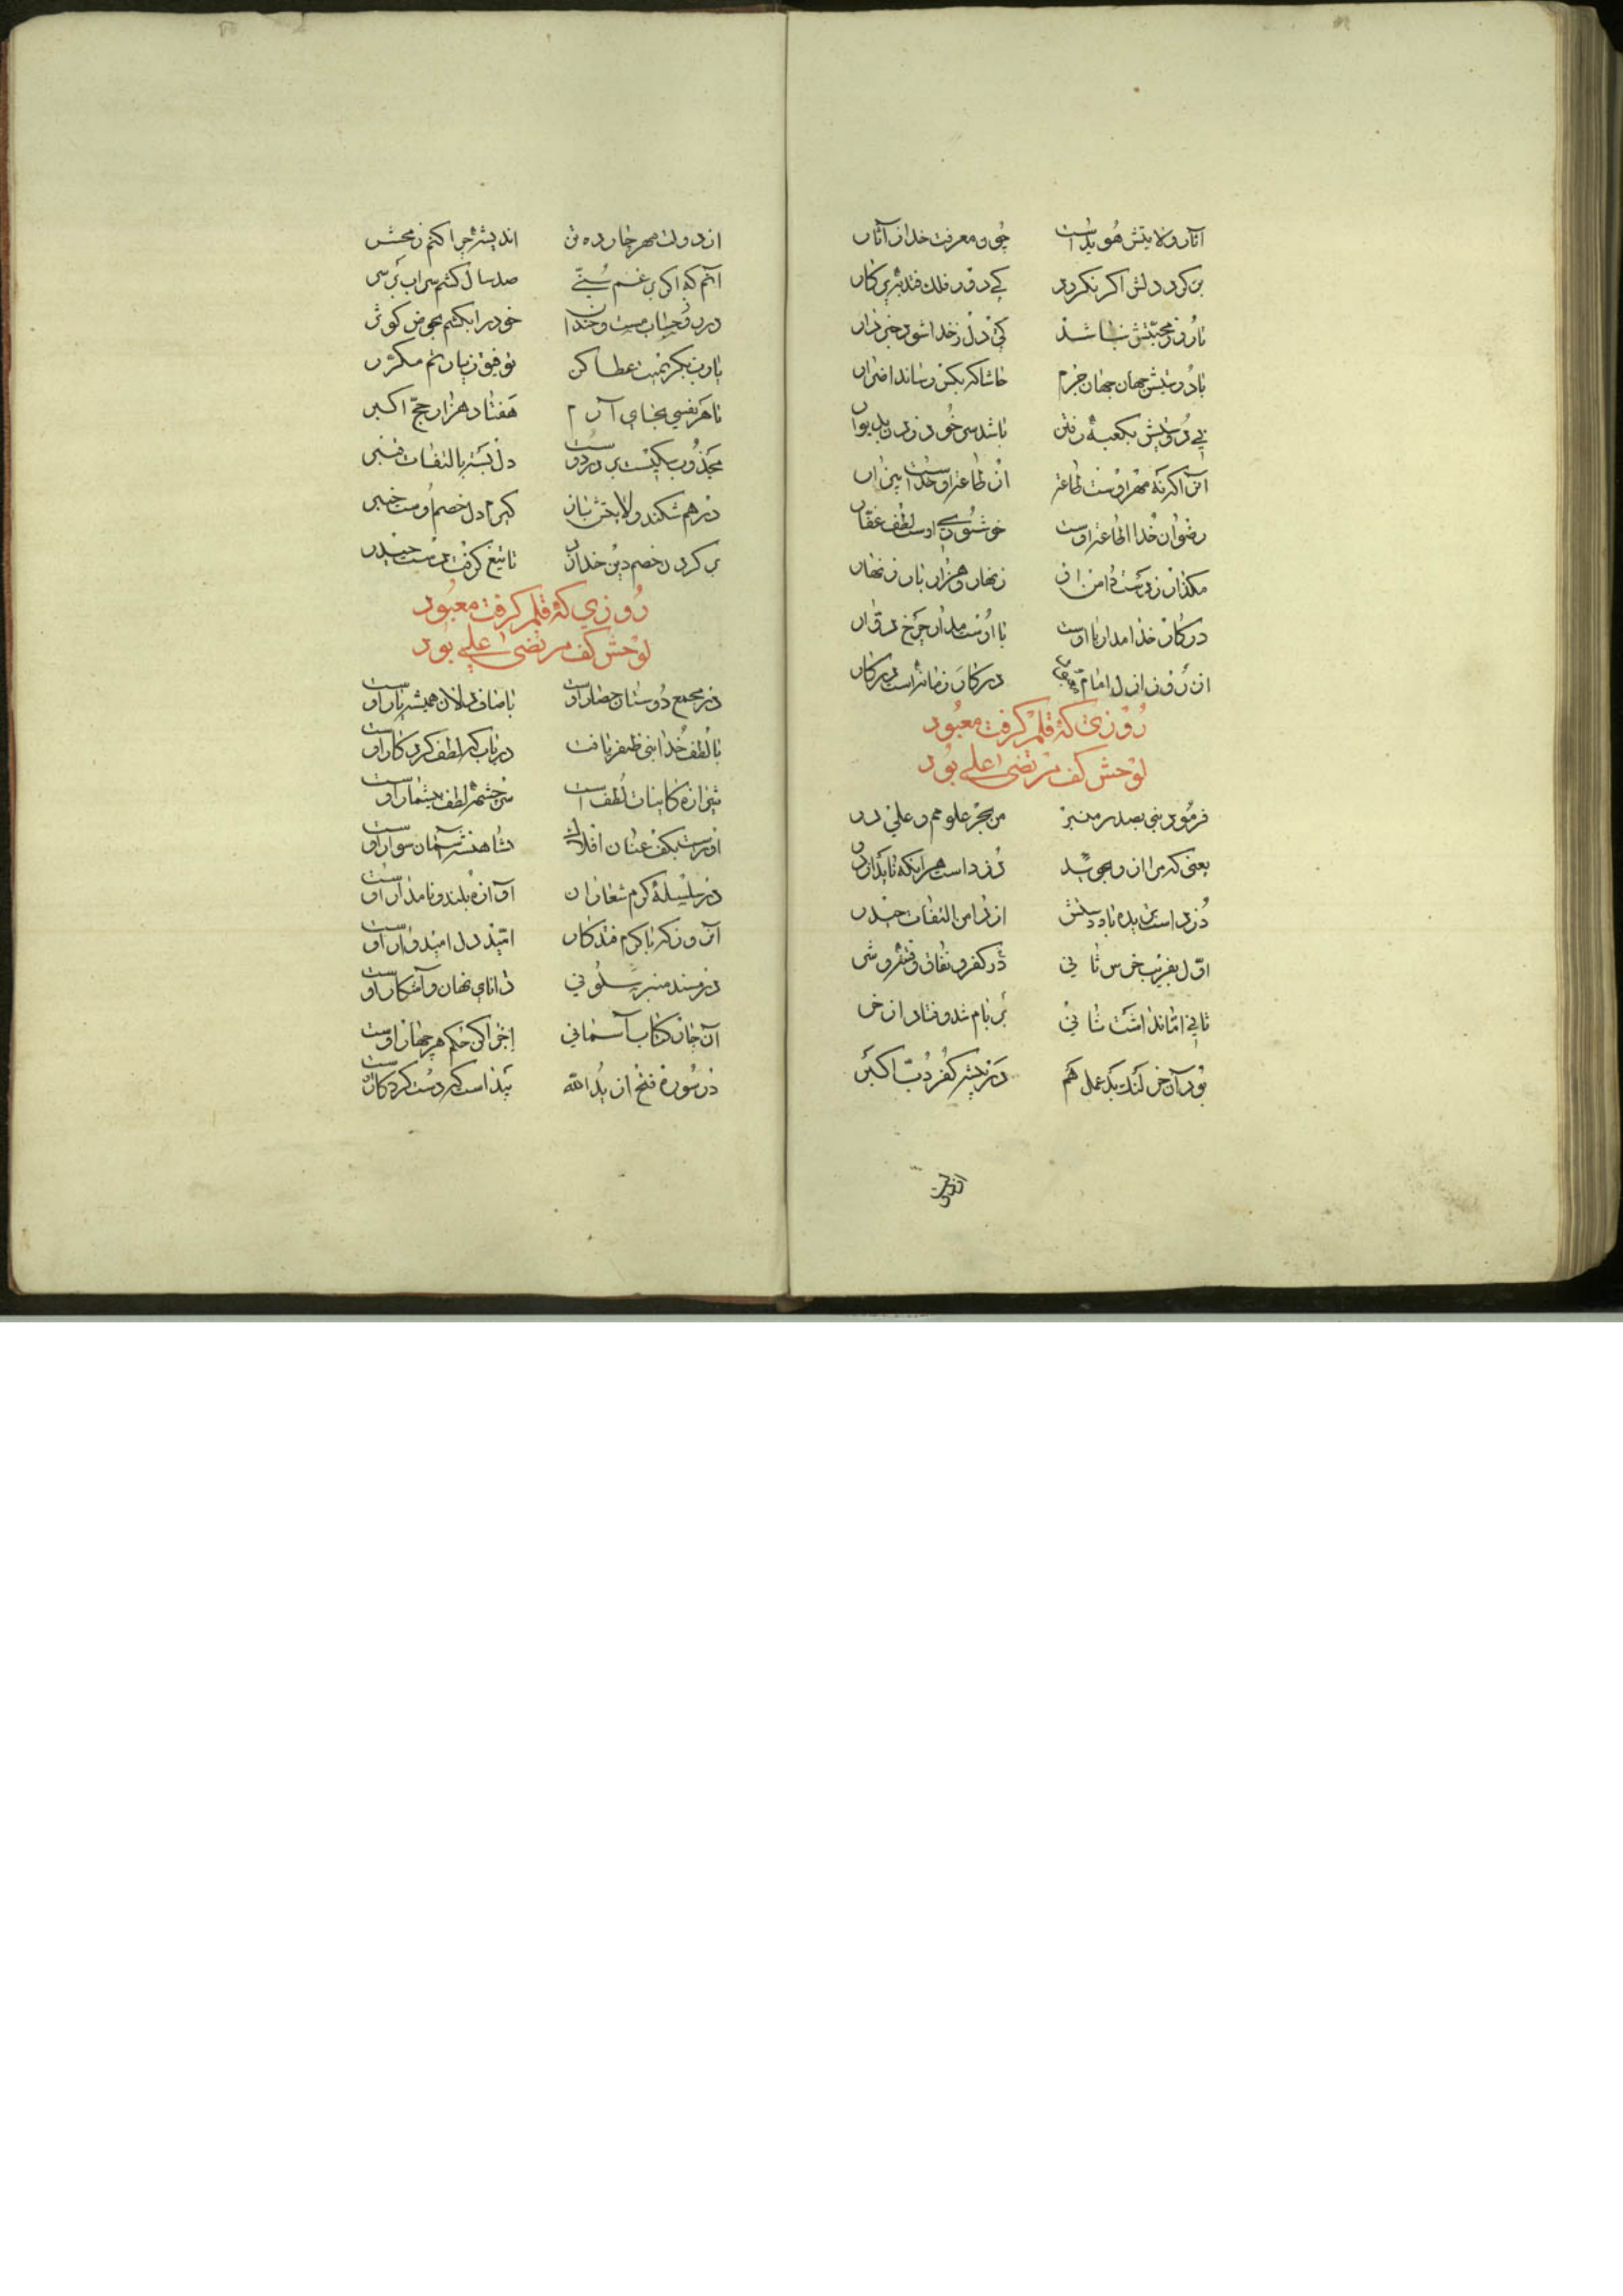 آثار ولایتش هویداست چون معرفت خدا ز آثار
بر کرد دلش اگر نکردد کی دور فلک فتد برین کار
تا روز محبتش نباشد کی دل ز خدا شود خبردار
با دوستیش جهان جهان جرم حاشا که بکس رساند اضرار
بی دوستیش بکعبه رفتن باشد سر خود زدن بدیوار
آن را که نه مهر اوست طاعت از طاعت او خداست بیزار
رضوان خدا اطاعت اوست خوشنودی اوست لطف غفار
مگذار ز دست دامن او زنهار و هزار بار زنهار
در کار خدا مدار با اوست با اوست مدار چرخ دوار
از روز ازل امام در کار زمانه است در کار
روزی که قلم گرفت معبود
لوحش کف مرتضی علی بود
فرمود نبی بصدر منبر من بحر علومم و علی در
یعنی که مرا از او بجویید دزد است هر آنکه ناید از در
دزد است اول بفریب خرس ثانی در کفر و نفاق و فتنه و شر
ثانی اما نداشت ثانی بر بام شد و فتاد از خر
بود آن خر لنگ بد عمل هم در بیشه کفر دب اکبر
از دولت
از دولت مهر چارده تن اندیشه چرا کنم ز محشر
آنم که اگر بر غم سنی صد سال کشم سر اب بر سر
در روز حساب مست و خندان خود را بکشم بحوض کوثر
یا رب بکرم نیت عطا کن توفیق زیارتم مکرر
تا هر نفسی بجای آرم هفتاد هزار حج اکبر
مجذوب سگیست بر در دوست دل بسته بالتفات قنبر
در هم شکند ولایتش باز گیرم دل خصم اوست خیبر
بر گردن خصم دین خدا زد تا تیغ گرفت دست حیدر
روزی که قلم گرفت معبود
لوحش کف مرتضی علی بود
در مجمع دوستان حصار اوست با صاف دلان همیشه یار اوست
با لطف خدا نبی ظفر یافت در باب که لطف کردگار اوست
شیرازه کاینات لطف است سرچشمه لطف بیشمار اوست
او راست بکف عنان افلاک شاهنشه آسمان سوار اوست
در سلسله کرم شعاران آوازه بلند و نامدار اوست
آن روز که با کرم فتد کار امید دل امیدوار اوست
در مسند منبر سلونی دانای نهان و آشکار اوست
آن جان کتاب آسمانی اجرا کن حکم هر چهار اوست
در سوره فتح از ید الله پیداست که دست کردگار اوست